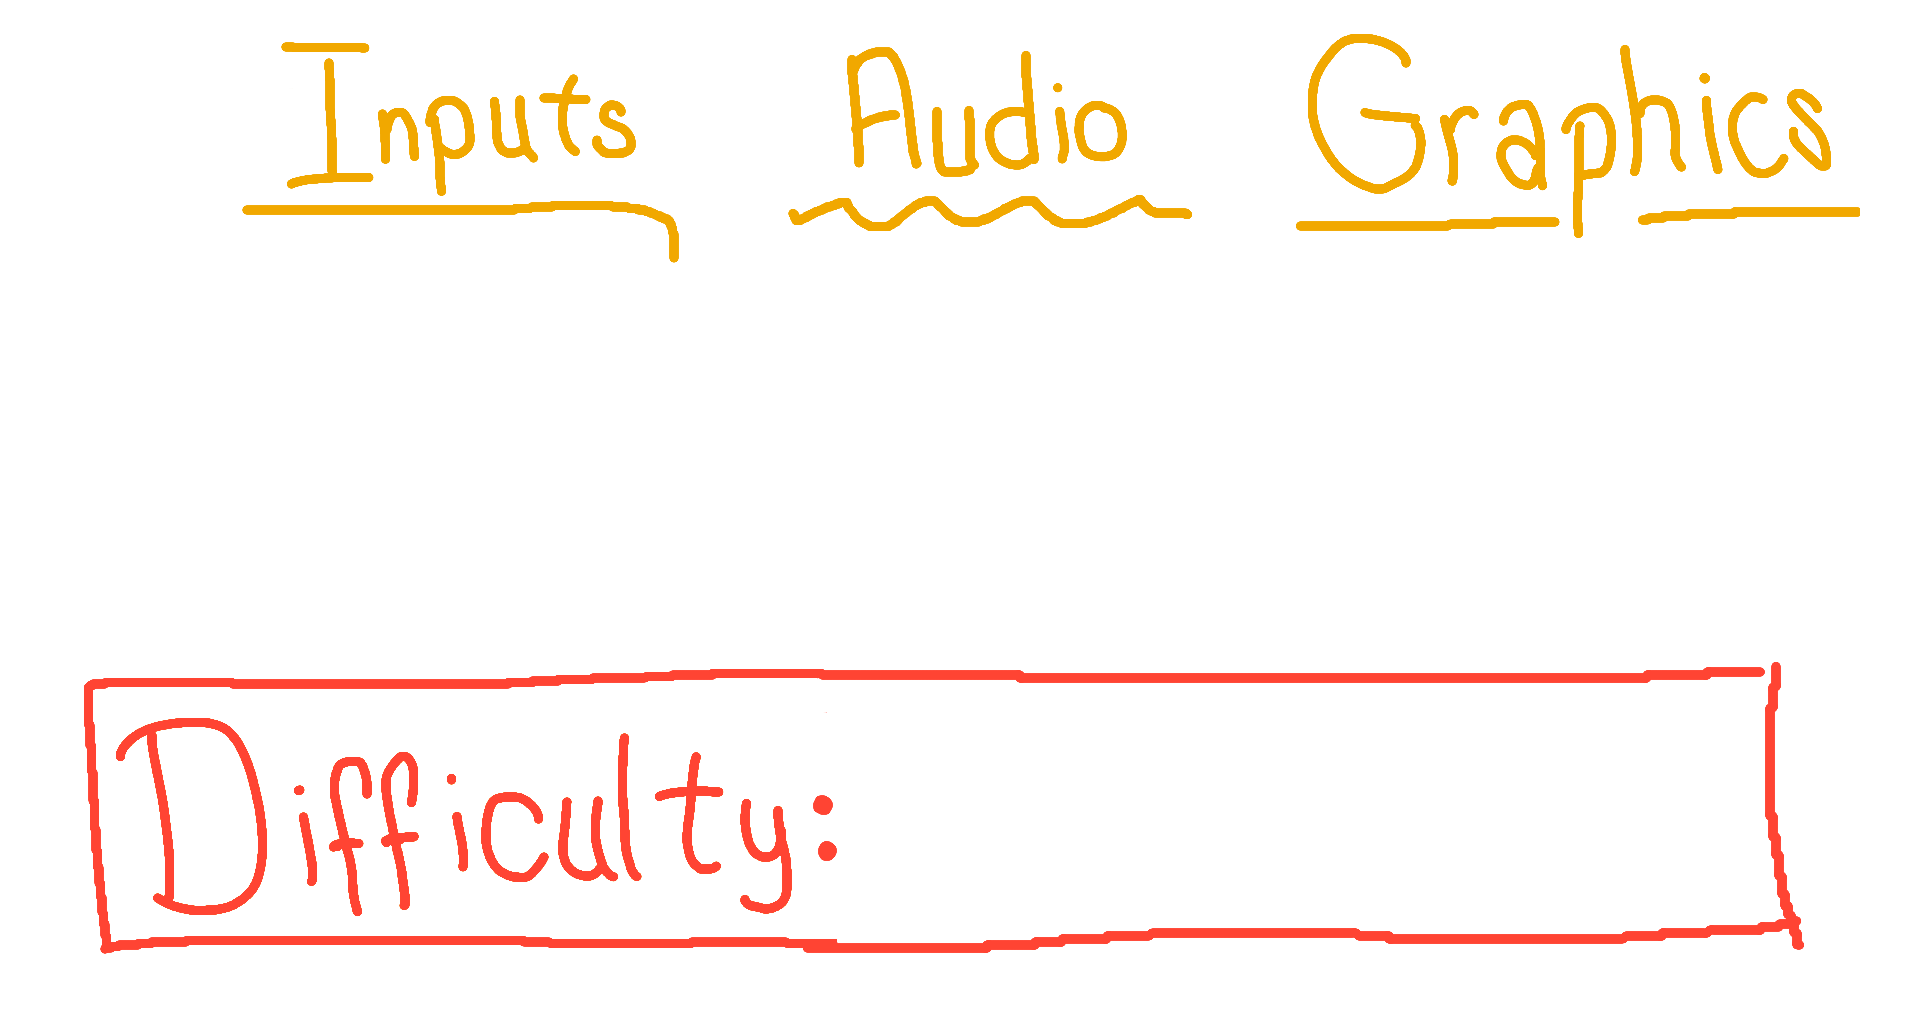 Inputs Audio Graphics
Difficulty: